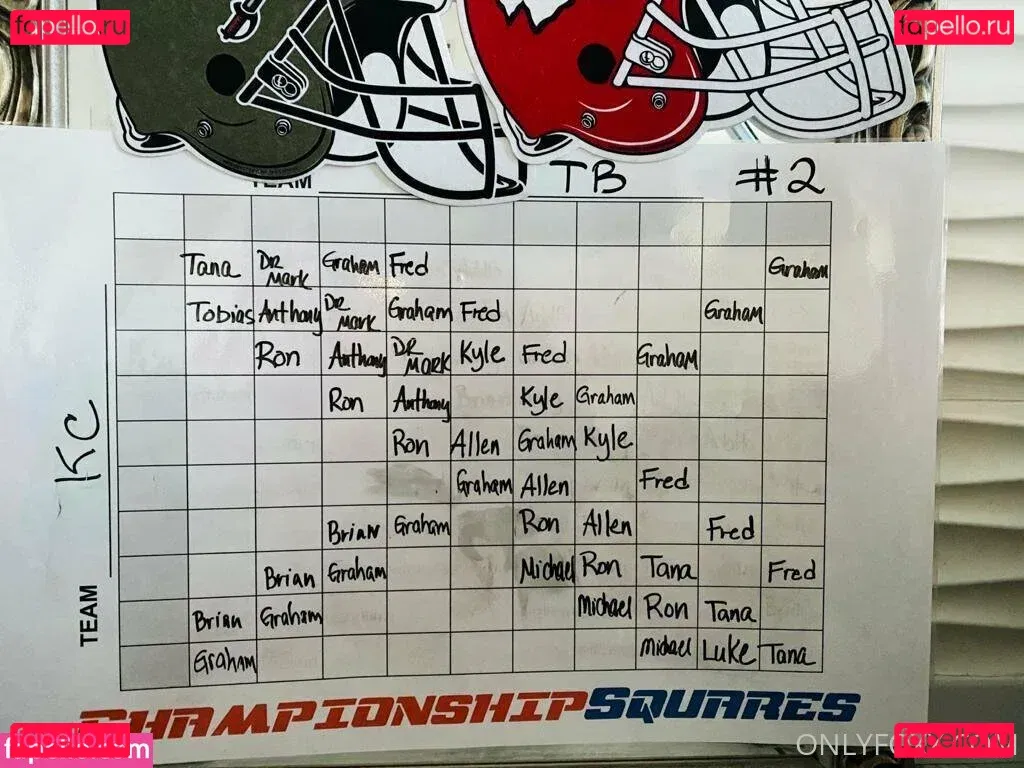 fapello.ru fapello.ru
TEAM TB #2
Tana DR MARK Graham Fred Graham
Tobias Anthony DR MARK Graham Fred Graham
Ron Anthony DR MARK Kyle Fred Graham
Ron Anthony Kyle Graham
Ron Allen Graham Kyle
Graham Allen Fred
Brian Graham Ron Allen Fred
Brian Graham Michael Ron Tana Fred
Brian Graham Michael Ron Tana
Graham Michael Luke Tana
TEAM KC
CHAMPIONSHIP SQUARES
fapello.ru fapello.ru